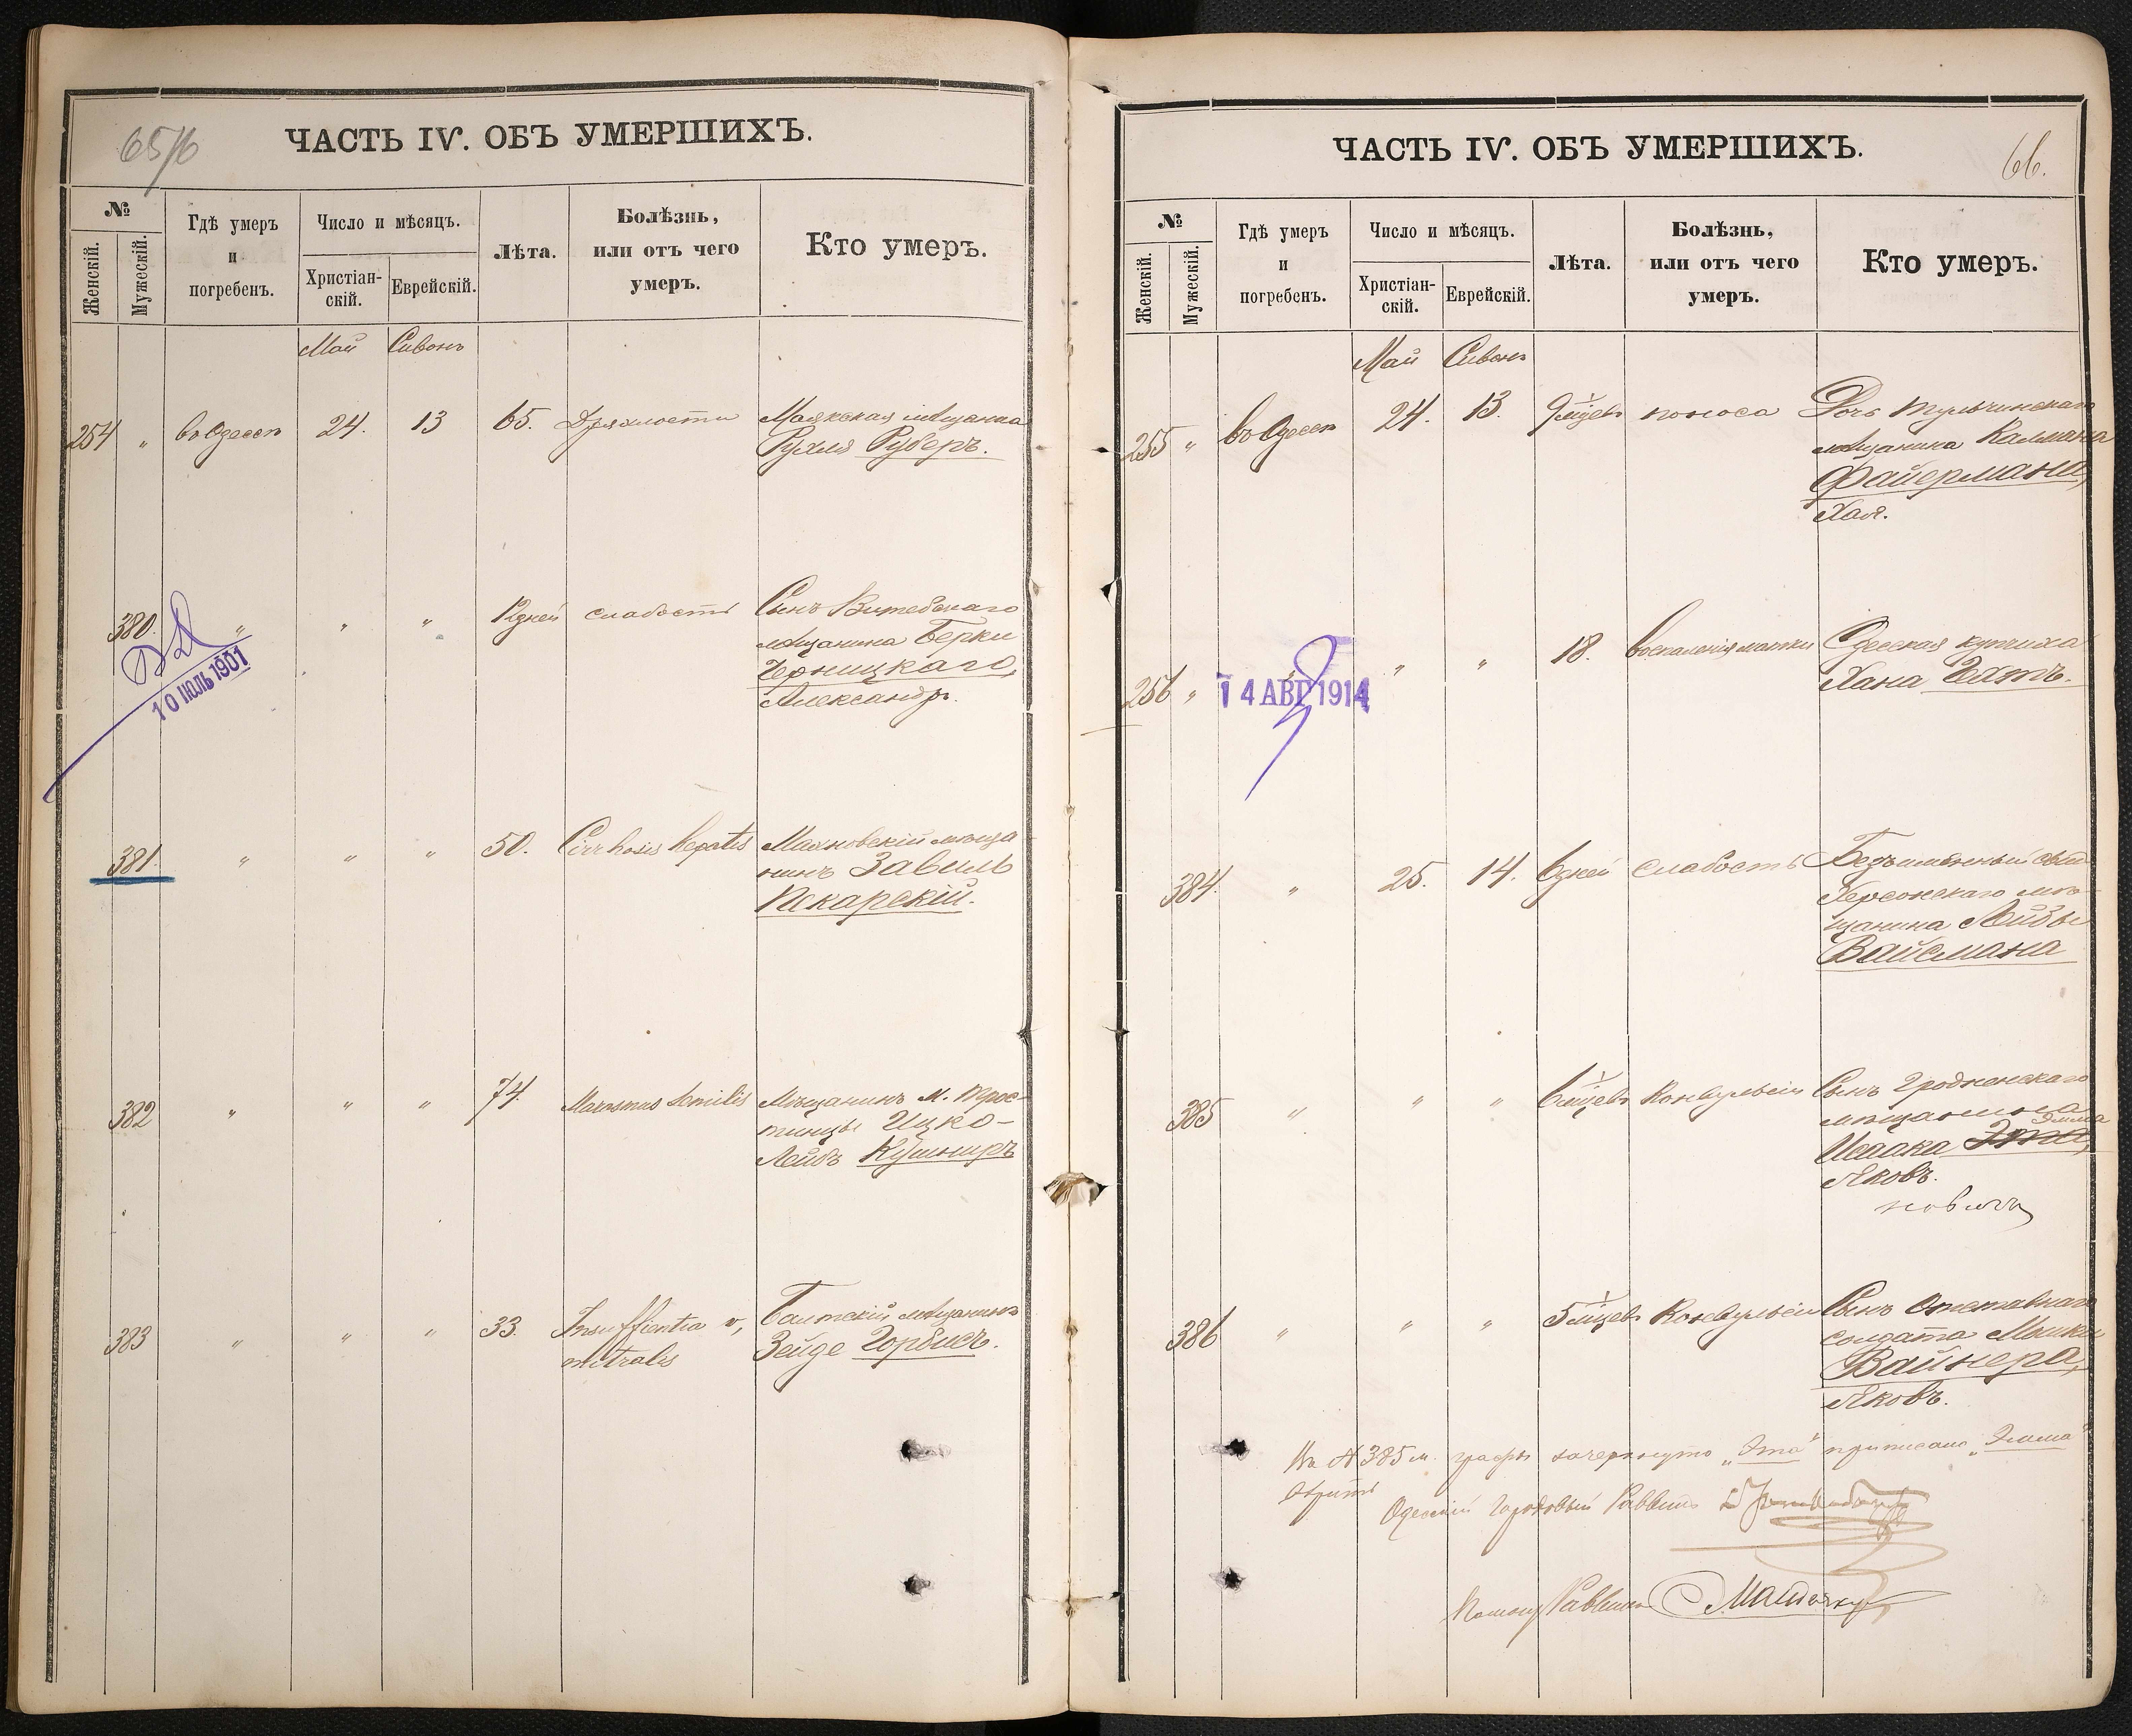 65/6
ЧАСТЬ IV. ОБЪ УМЕРШИХЪ.
№
Женскій.
Мужескій.
Гдѣ умеръ
и
погребенъ.
Число и мѣсяцъ.
Христіан-
скій.
Еврейскій.
Лѣта.
Болѣзнь,
или отъ чего
умеръ.
Кто умеръ.
Май Сивонъ
254 " въ Одессѣ 24. 13 65. Дряхлости Маякская мѣщанка
Рухля Руберъ.
380. " " " 12 дней слабости Сынъ Витебскаго
мѣщанина Берки
Черницкаго,
Александръ.
10 ИЮЛЬ 1901
381. " " " 50. Cirrhosis hepatis Маяковскій мѣща
нинъ Завиль
Пскарскій.
382 " " " 74. Marasmus Senilis Мѣщанинъ м. Трос-
тинцы Ицко-
Лейбъ Кушниръ
383 " " " 33. Insuffientia v, Балтскій мѣщанинъ
mitralis Зейде Горбисъ.
ЧАСТЬ IV. ОБЪ УМЕРШИХЪ.
66.
№
Женскій.
Мужескій.
Гдѣ умеръ
и
погребенъ.
Число и мѣсяцъ.
Христіан-
скій.
Еврейскій.
Лѣта.
Болѣзнь,
или отъ чего
умеръ.
Кто умеръ.
Май Сивонъ
255 " въ Одессѣ 24. 13. 9 мѣцевъ поноса Дочь Тульчинскаго
мѣщанина Калмана
Файермана,
Хая.
256 " " " " 18. воспаленія матки Одесская купчиха
Хана Гехтъ.
14 АВГ 1914
384. " 25. 14. 6 дней слабость Безъименный сынъ
Херсонскаго мѣ-
щанина Лейбы
Вайсмана
385 " " " 6 мѣцевъ Конвульсіи Сынъ Гродненскаго
мѣщанина
Эмма
Исаака Эта,
Яковъ.
новича
386 " " " 5 мѣцевъ Конвульсіи Сынъ Отставнаго
солдата Мошки
Вайнера,
Яковъ.
На № 385 м. графы зачеркнуто „Эта" приписано „Эмма"
Одесскій Городовый Раввинъ
Помощ Раввина